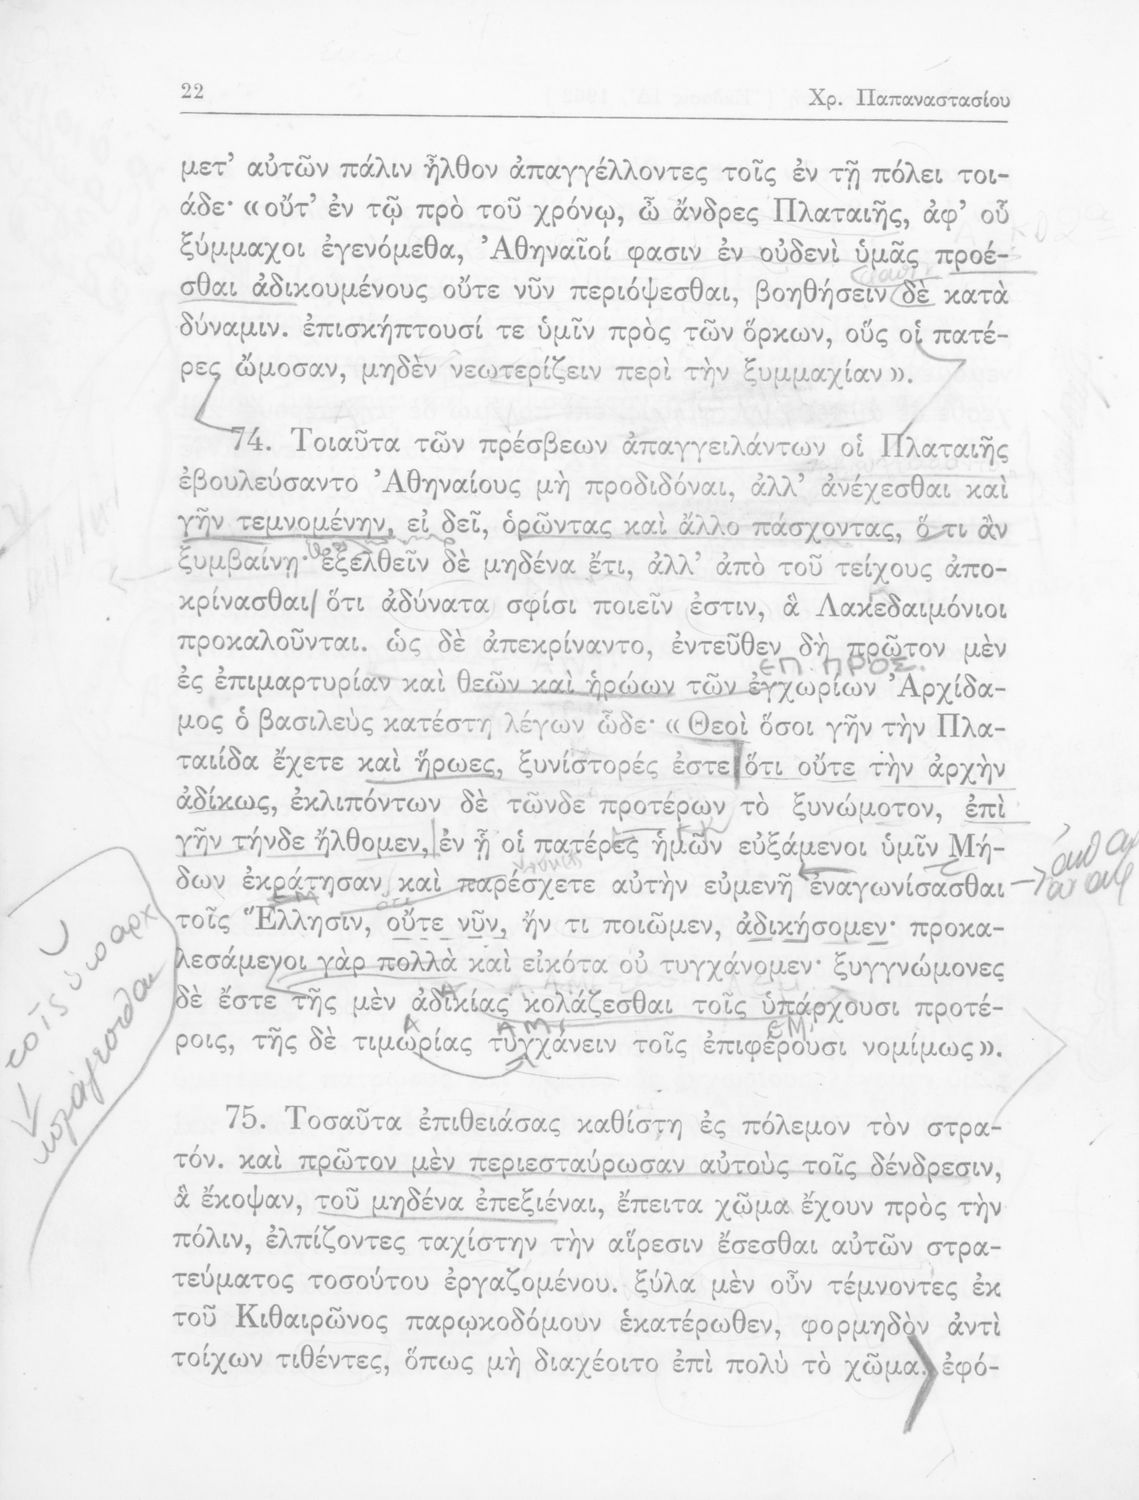 22
Χρ. Παπαναστασίου
μετ’ αὐτῶν πάλιν ἦλθον ἀπαγγέλλοντες τοῖς ἐν τῇ πόλει τοι-
άδε· «οὔτ’ ἐν τῷ πρὸ τοῦ χρόνῳ, ὦ ἄνδρες Πλαταιῆς, ἀφ’ οὗ
ξύμμαχοι ἐγενόμεθα, ’Αθηναῖοί φασιν ἐν οὐδενὶ ὑμᾶς προέ-
σθαι ἀδικουμένους οὔτε νῦν περιόψεσθαι, βοηθήσειν δὲ κατὰ
δύναμιν. ἐπισκήπτουσί τε ὑμῖν πρὸς τῶν ὅρκων, οὓς οἱ πατέ-
ρες ὤμοσαν, μηδὲν νεωτερίζειν περὶ τὴν ξυμμαχίαν».
74. Τοιαῦτα τῶν πρέσβεων ἀπαγγειλάντων οἱ Πλαταιῆς
ἐβουλεύσαντο ’Αθηναίους μὴ προδιδόναι, ἀλλ’ ἀνέχεσθαι καὶ
γῆν τεμνομένην, εἰ δεῖ, ὁρῶντας καὶ ἄλλο πάσχοντας, ὅ τι ἂν
ξυμβαίνῃ· ἐξελθεῖν δὲ μηδένα ἔτι, ἀλλ’ ἀπὸ τοῦ τείχους ἀπο-
κρίνασθαι ὅτι ἀδύνατα σφίσι ποιεῖν ἐστιν, ἃ Λακεδαιμόνιοι
προκαλοῦνται. ὡς δὲ ἀπεκρίναντο, ἐντεῦθεν δὴ πρῶτον μὲν
ΕΠ. ΠΡΟΣ.
ἐς ἐπιμαρτυρίαν καὶ θεῶν καὶ ἡρώων τῶν ἐγχωρίων ’Αρχίδα-
μος ὁ βασιλεὺς κατέστη λέγων ὧδε· «Θεοὶ ὅσοι γῆν τὴν Πλα-
ταιίδα ἔχετε καὶ ἥρωες, ξυνίστορές ἐστε ὅτι οὔτε τὴν ἀρχὴν
ἀδίκως, ἐκλιπόντων δὲ τῶνδε προτέρων τὸ ξυνώμοτον, ἐπὶ
γῆν τήνδε ἤλθομεν, ἐν ᾗ οἱ πατέρες ἡμῶν εὐξάμενοι ὑμῖν Μή-
δων ἐκράτησαν καὶ παρέσχετε αὐτὴν εὐμενῆ ἐναγωνίσασθαι
ὅτι
τοῖς Ἕλλησιν, οὔτε νῦν, ἤν τι ποιῶμεν, ἀδικήσομεν· προκα-
λεσάμενοι γὰρ πολλὰ καὶ εἰκότα οὐ τυγχάνομεν· ξυγγνώμονες
δὲ ἔστε τῆς μὲν ἀδικίας κολάζεσθαι τοῖς ὑπάρχουσι προτέ-
ροις, τῆς δὲ τιμωρίας τυγχάνειν τοῖς ἐπιφέρουσι νομίμως».
75. Τοσαῦτα ἐπιθειάσας καθίστη ἐς πόλεμον τὸν στρα-
τόν. καὶ πρῶτον μὲν περιεσταύρωσαν αὐτοὺς τοῖς δένδρεσιν,
ἃ ἔκοψαν, τοῦ μηδένα ἐπεξιέναι, ἔπειτα χῶμα ἔχουν πρὸς τὴν
πόλιν, ἐλπίζοντες ταχίστην τὴν αἵρεσιν ἔσεσθαι αὐτῶν στρα-
τεύματος τοσούτου ἐργαζομένου. ξύλα μὲν οὖν τέμνοντες ἐκ
τοῦ Κιθαιρῶνος παρῳκοδόμουν ἑκατέρωθεν, φορμηδὸν ἀντὶ
τοίχων τιθέντες, ὅπως μὴ διαχέοιτο ἐπὶ πολὺ τὸ χῶμα. ἐφό-